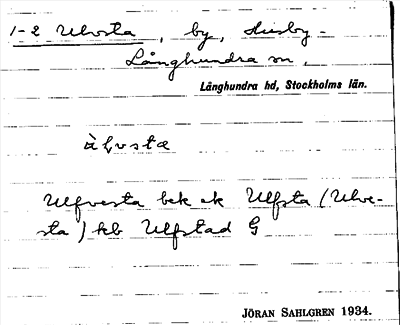 1-2 Ulvsta, by, Husby-
Långhundra sn,
Långhundra hd, Stockholms län.
Ulfvesta bek ek Ulfsta (Ulve-
sta) kb Ulfstad G
JÖRAN SAHLGREN 1934.